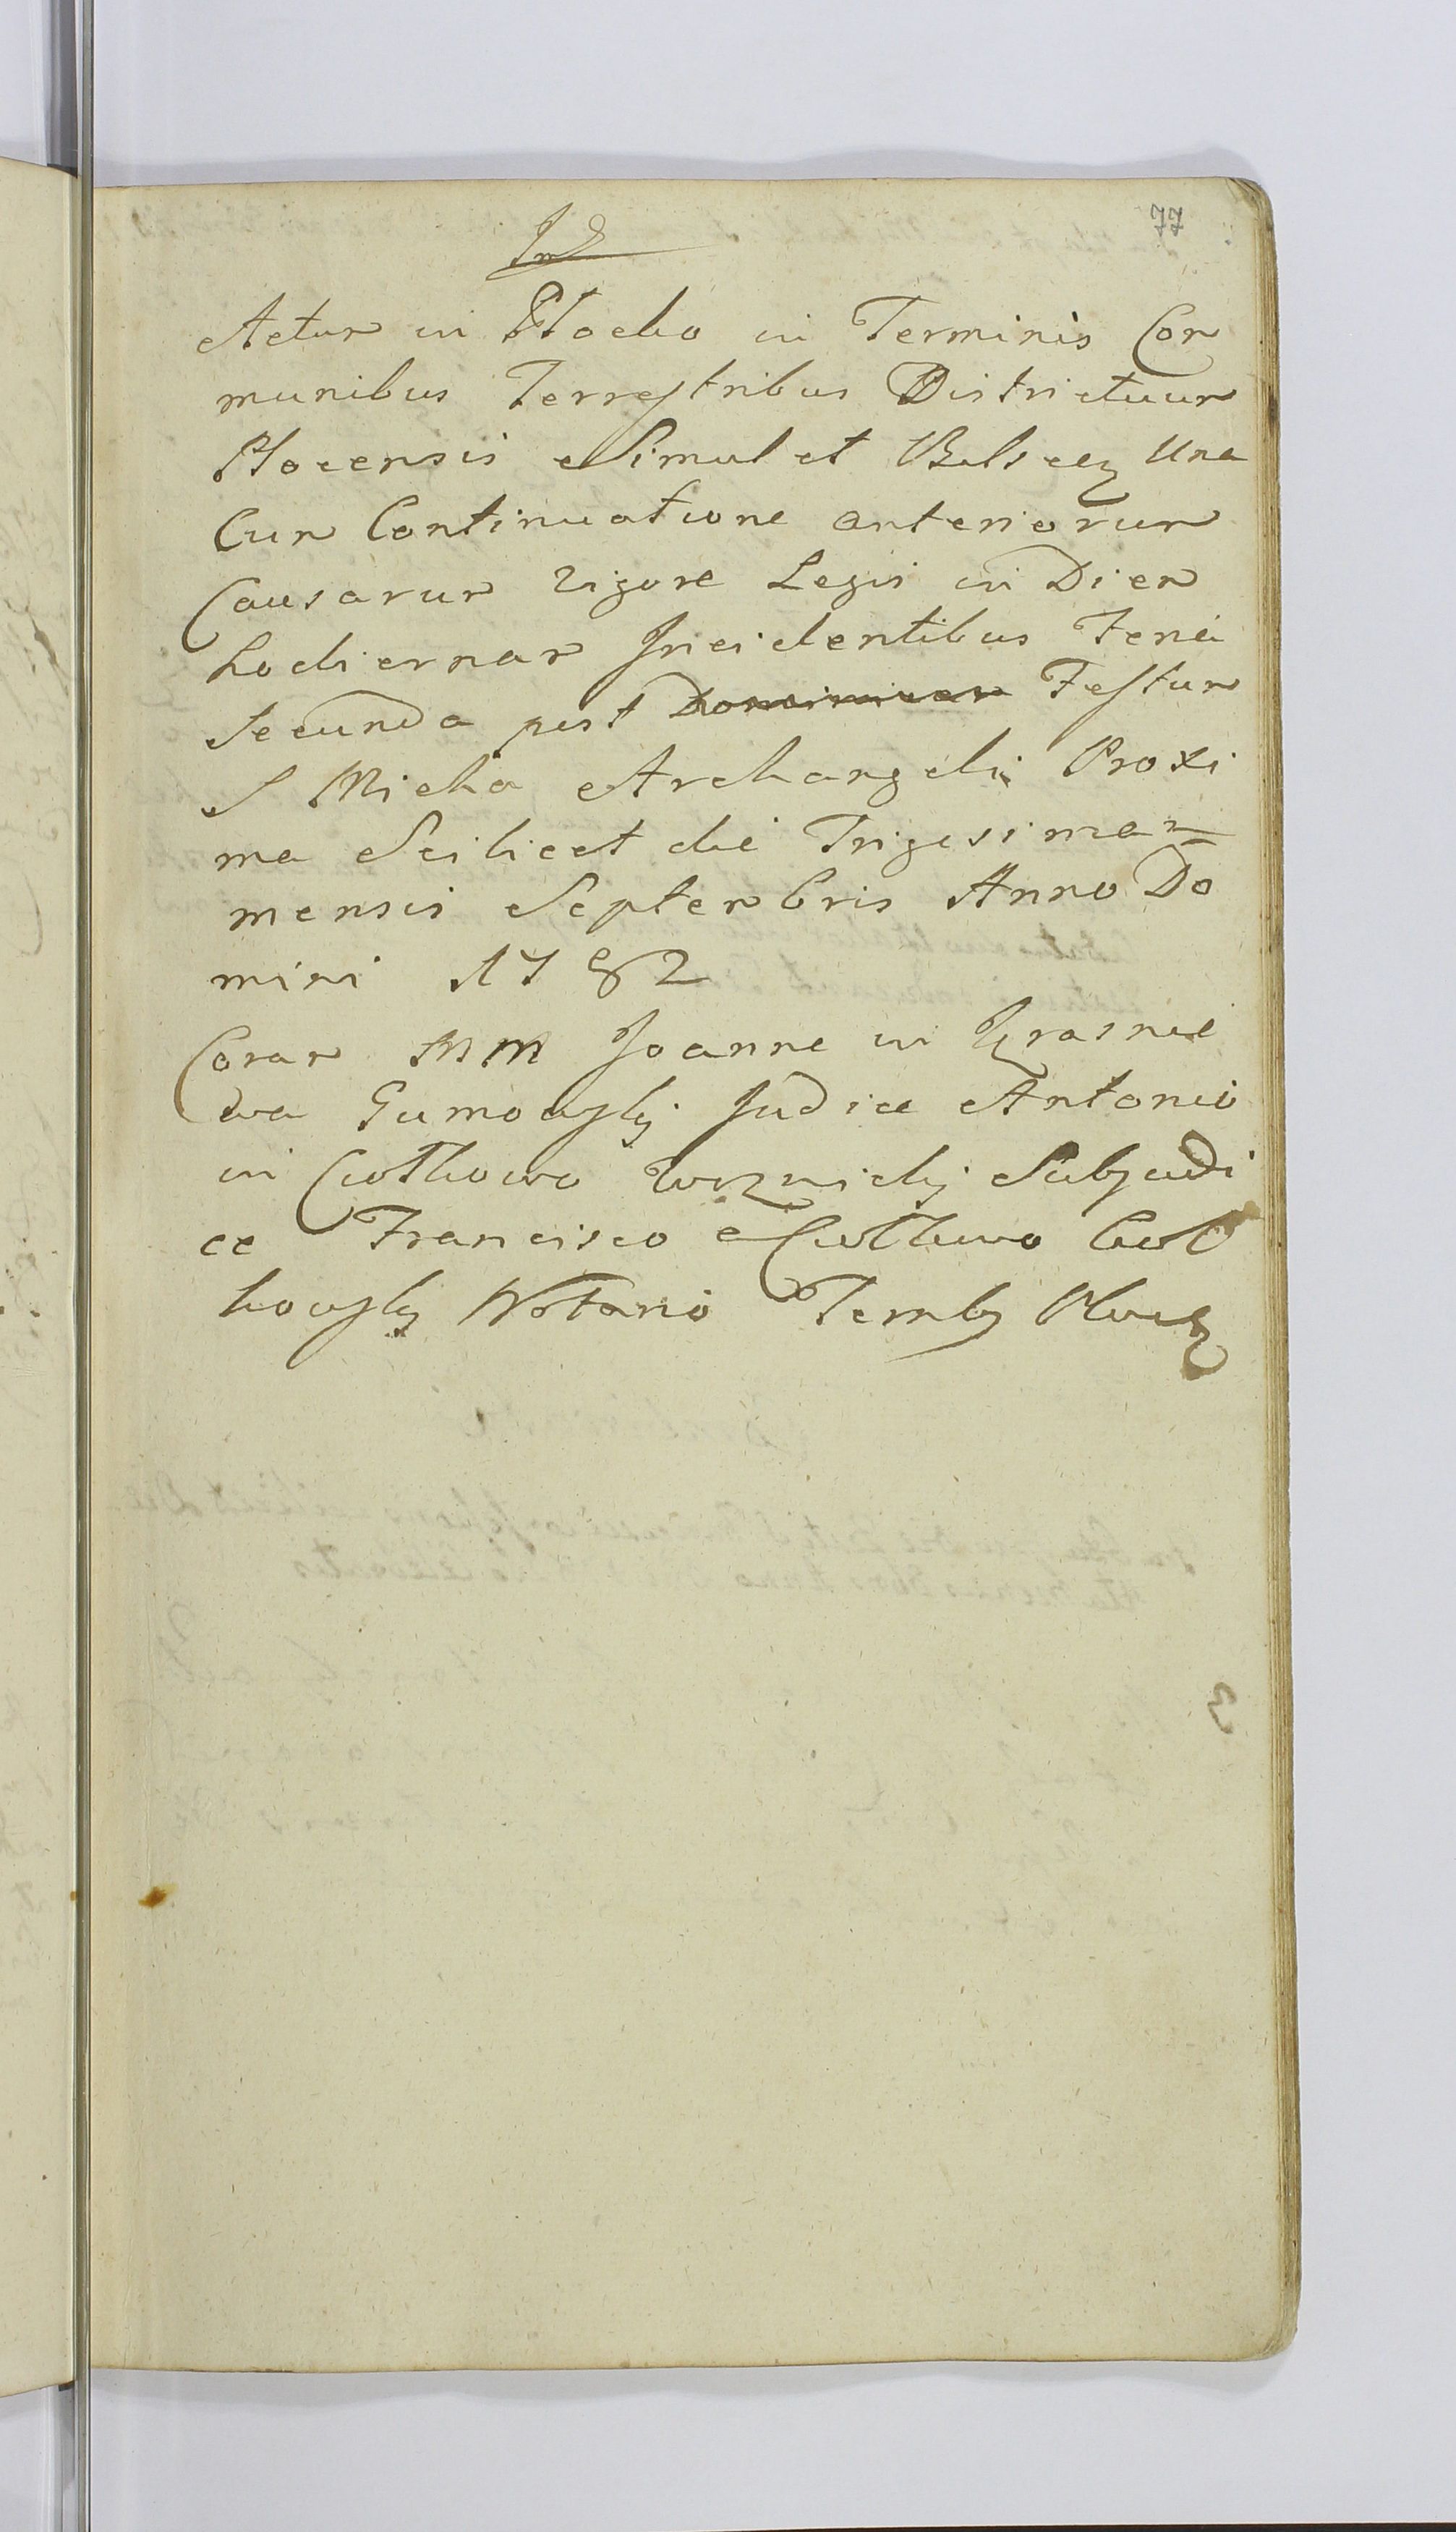 77
Actum in Plocko in Terminis Com
munibus Terrestribus Districtuum
Plocensis Simul et Belscen Una
Cum Continuatione anteriorum
Causarum vigore Legis in Diem
hodiernam Incidentibus Feria
Secunda post Dominicam Festum
S Micha Archangeli Proxi
ma Scilicet die Trigesima
mensis Septembris Anno Do
mini 1782
Coram MM Joanne in Krasnie
wa Gumowskj Judice Antonio
in Ciołkowo Subjudi
ce Francisco Ciołkowo Cioł
kowskj Notario Plocen